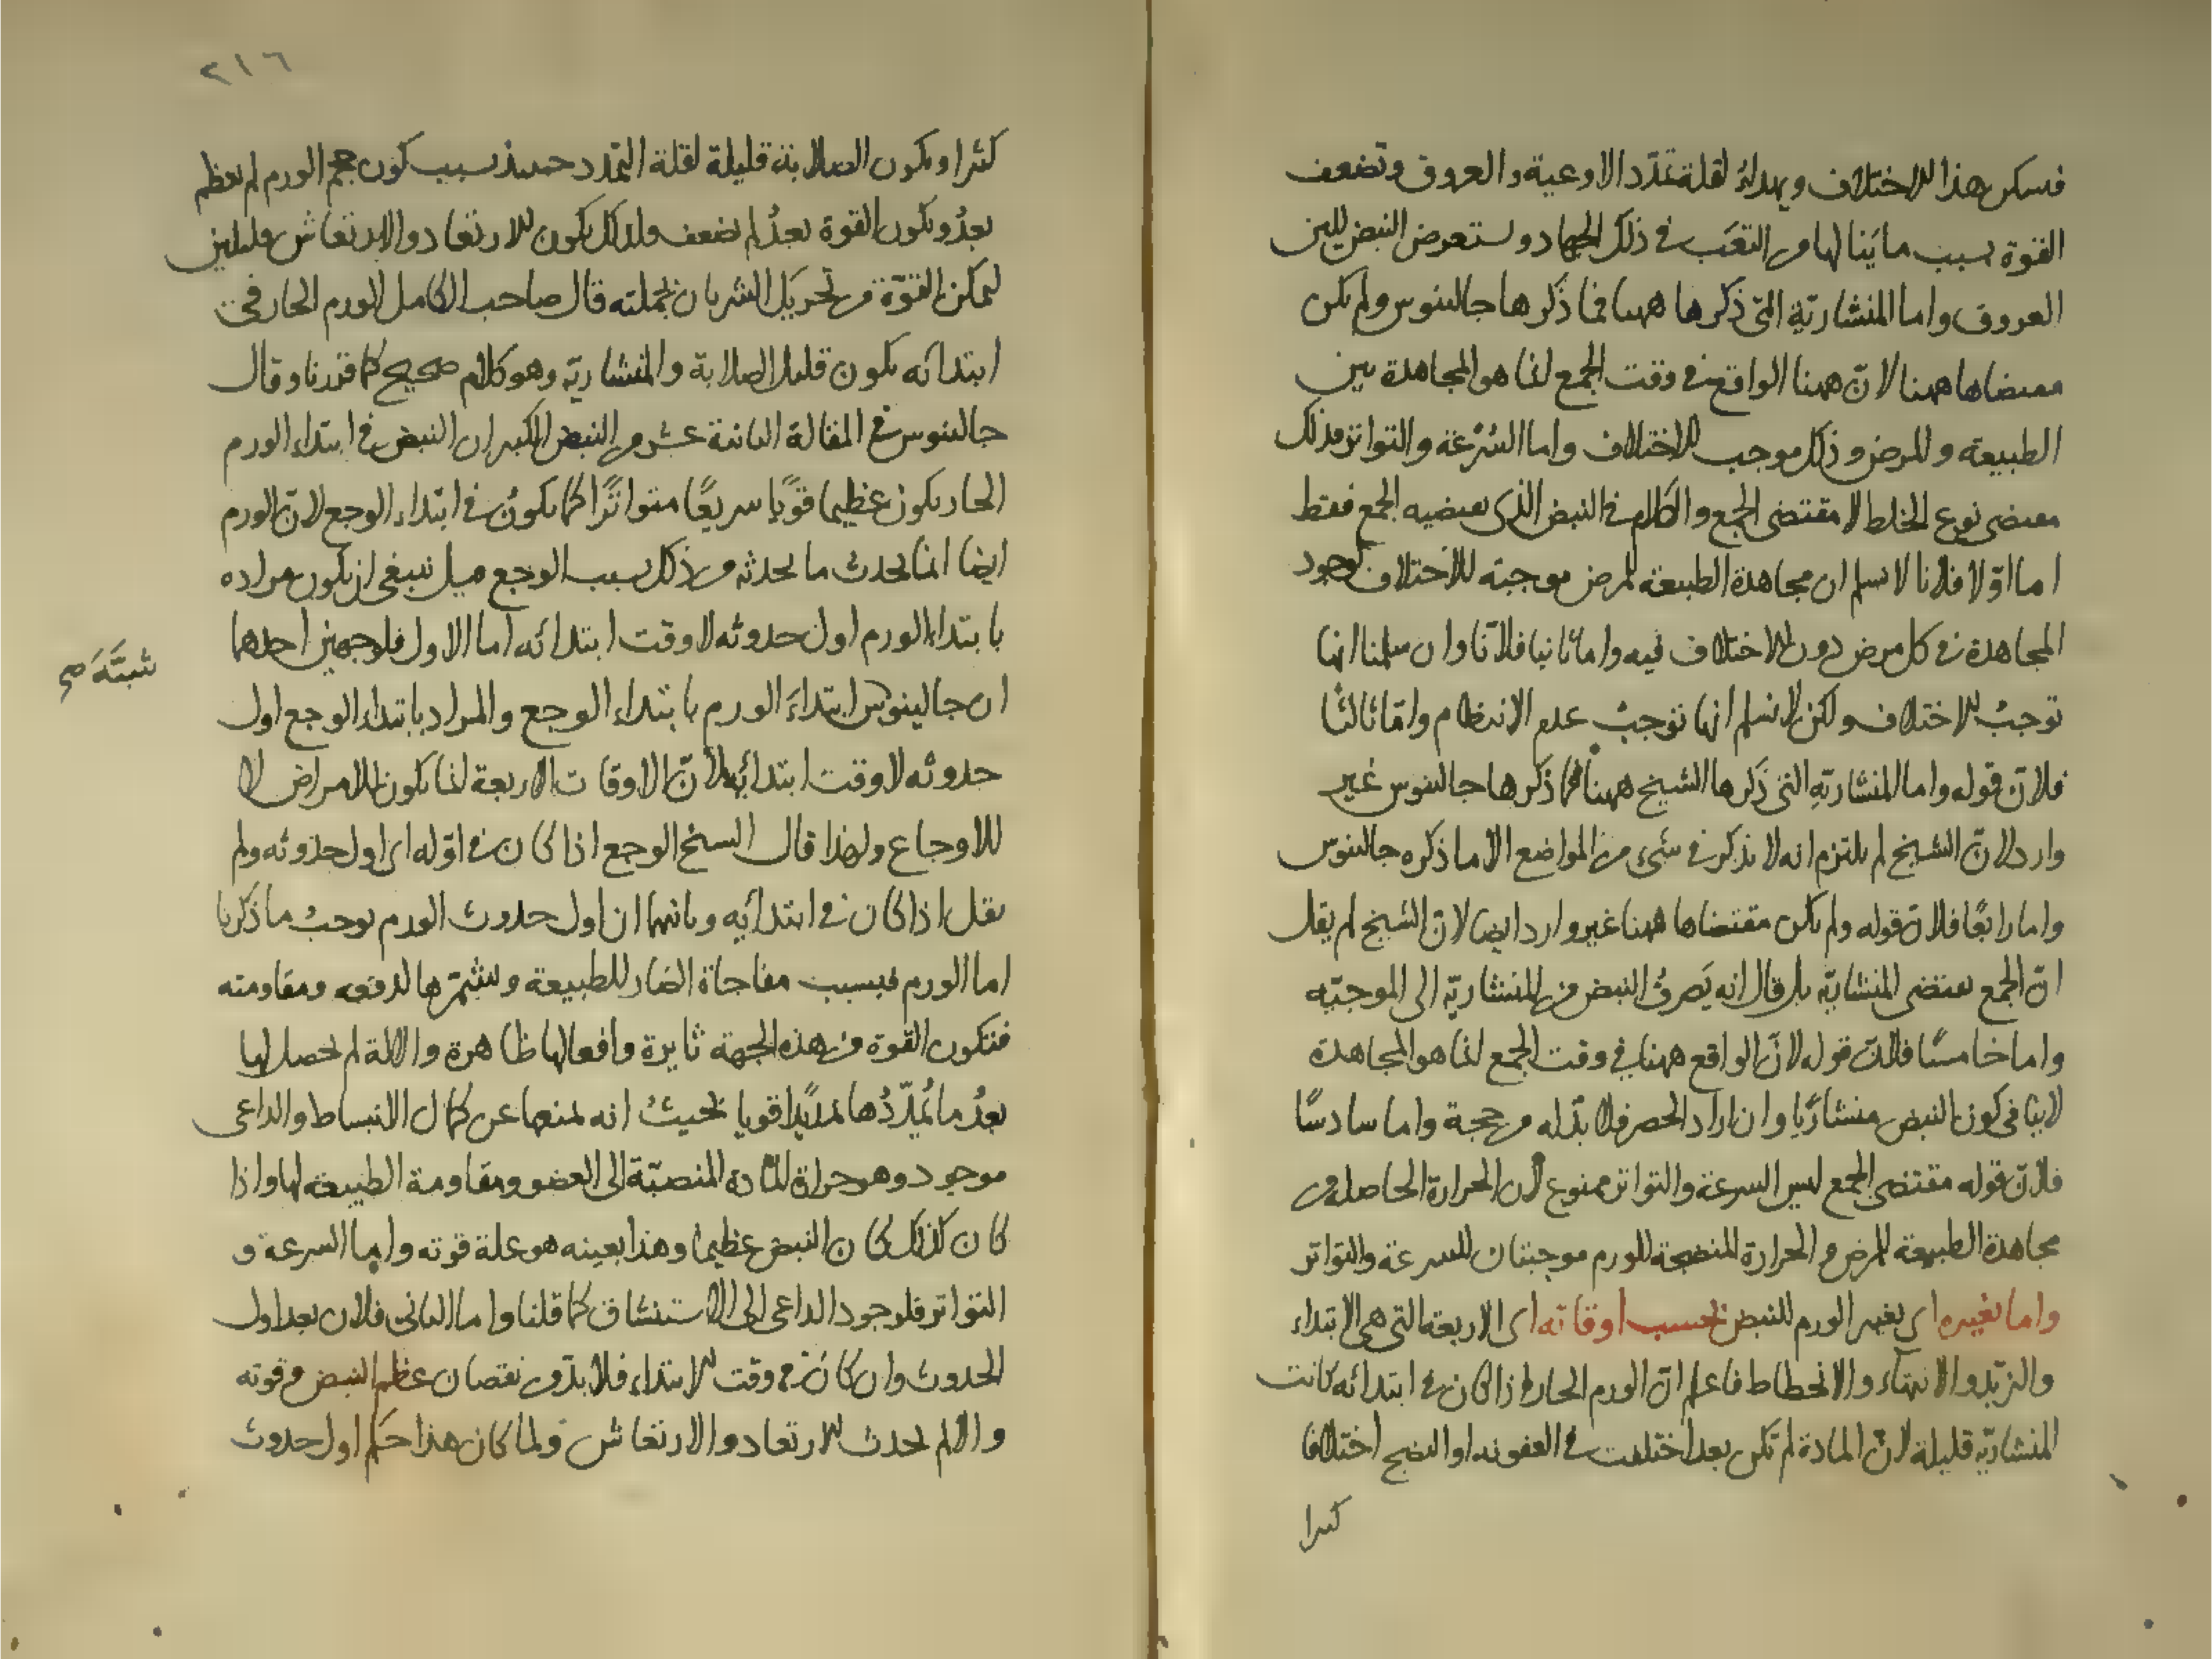 فسكن هذا الاختلاف ويهدأ لقلة تمدّد الاوعية والعروق وتضعف
القوة بسبب ما ينالها من التعَب فى ذلك الجهاد ويستعرض النبض للين
العروق واما المنشاريّة التى ذكرها ههنا فما ذكرها جالينوس ولم يكن
مقتضاها ههنا لانّ ههنا الواقع فى وقت الجمع انما هو المجاهدة بين
الطبيعة والمرض وذلك موجب للاختلاف واما السُرْعة والتواتر فذلك
مقتضى نوع الخلط لا مقتضى الجمع والكلام فى النبض الذى يقتضيه الجمع فقط
اما اوّلا فلانا لا نسلم ان مجاهدة الطبيعة للمرض موجبة للاختلاف لوجود
المجاهدة فى كل مرض دون الاختلاف فيه واما ثانيا فلانّا وان سلمنا انها
توجبُ الاختلاف ولكن لا نسلم انها توجبُ عدم الانتظام وامّا ثالثا
فلانّ قوله واما المنشاريّة التى ذَكرها الشيخ ههنا فما ذكرها جالينوس غير
وارد لانّ الشيخ لم يلتزم انه لا يذكر فى شىء من المواضع الا ما ذكره جالينوس
واما رابعًا فلانّ قوله ولم يكن مقتضاها ههنا غير وارد ايضا لانّ الشيخ لم يقل
انّ الجمع يقتضى المنشاريّة بل قال انه يَصرفُ النبض من المنشاريّة الى الموجيّه
واما خامسًا فلانّ قوله لانّ الواقع ههنا فى وقت الجمع انما هو المجاهدة
لا ينافى كون النبض منشاريّا وان اراد الحصر فلا بدّ له من حجة واما سادسًا
فلانّ قوله مقتضى الجمع ليس السرعة والتواتر ممنوع لانّ الحرارة الحاصلة من
مجاهدة الطبيعة للمرض والحرارة المنضجة للورم موجبتان للسرعة والتواتر
واما تغييره اى تغيير الورم للنبض بحسب اوقاته اى الاربعة التى هى الابتداء
والتزيّد والانتهاء والانحطاط فاعلم انّ الورم الحار اذا كان فى ابتدائه كانت
المنشاريّة قليلة لانّ المادة لم تكن بعد اختلفت فى العفونة او النضج اختلافا
كثيرا
٢١٦
كثيرا ويكون الصلابة قليلة لقلة التمدد حينئذ بسبب كون حجم الورم لم يعظم
بعدُ ويكون القوة بعدُ لم تضعف ولذلك يكون الارتعاد والارتعاش قليلين
ليمكن القوّة من تحريك الشريان بجملته قال صاحب الكامل الورم الحار فى
ابتدائه يكون قليل الصلابة والمنشاريّة وهو كلام صحيح كما قررنا وقال
جالينوس فى المقالة الثانية عشر من النبض الكبير ان النبض فى ابتداء الورم
الحار يكون عظيما قويًا سريعًا متواترًا كما يكون فى ابتداء الوجع لانّ الورم
ايضا انما يحدث ما يحدثه من ذلك بسبب الوجع قيل ينبغى ان يكون مراده
بابتداء الورم اول حدوثه لا وقت ابتدائه اما الاول فلوجهين احدهما
ان جالينوس ابتداءَ الورم بابتداء الوجع والمراد بابتداء الوجع اول
شبَّهَ صح
حدوثه لا وقت ابتدائه لانّ الاوقات الاربعة انما يكون للامراض لا
للاوجاع ولهذا قال الشيخ الوجع اذا كان فى اوّله اى اول حدوثه ولم
يقل اذا كان فى ابتدائه وثانيهما ان اول حدوث الورم يوجبُ ما ذكرنا
اما الورم فبسبب مفاجاة الضار للطبيعة وتشمّرها لدفعه ومقاومته
فتكون القوة من هذه الجهة ثايرة وافعالها ظاهرة والالة لم يحصل لها
بعدُ ما يُمدّدُها تمديدًا قويا بحيث انه يمنعها عن كمال الانبساط والداعى
موجود وهو حرارة المادة المنصبّة الى العضو ومقاومة الطبيعة لها واذا
كان كذلك كان النبض عظيما وهذا بعينه هو علة قوته واما السرعة و
التواتر فلوجود الداعى الى الاستنشاق كما قلنا واما الثانى فلان بعد اول
الحدوث وان كان فى وقت الابتداء فلا بدّ من نقصان عظم النبض وقوته
والالم يحدث الارتعاد والارتعاش ولما كان هذا حَكم اول حدوث